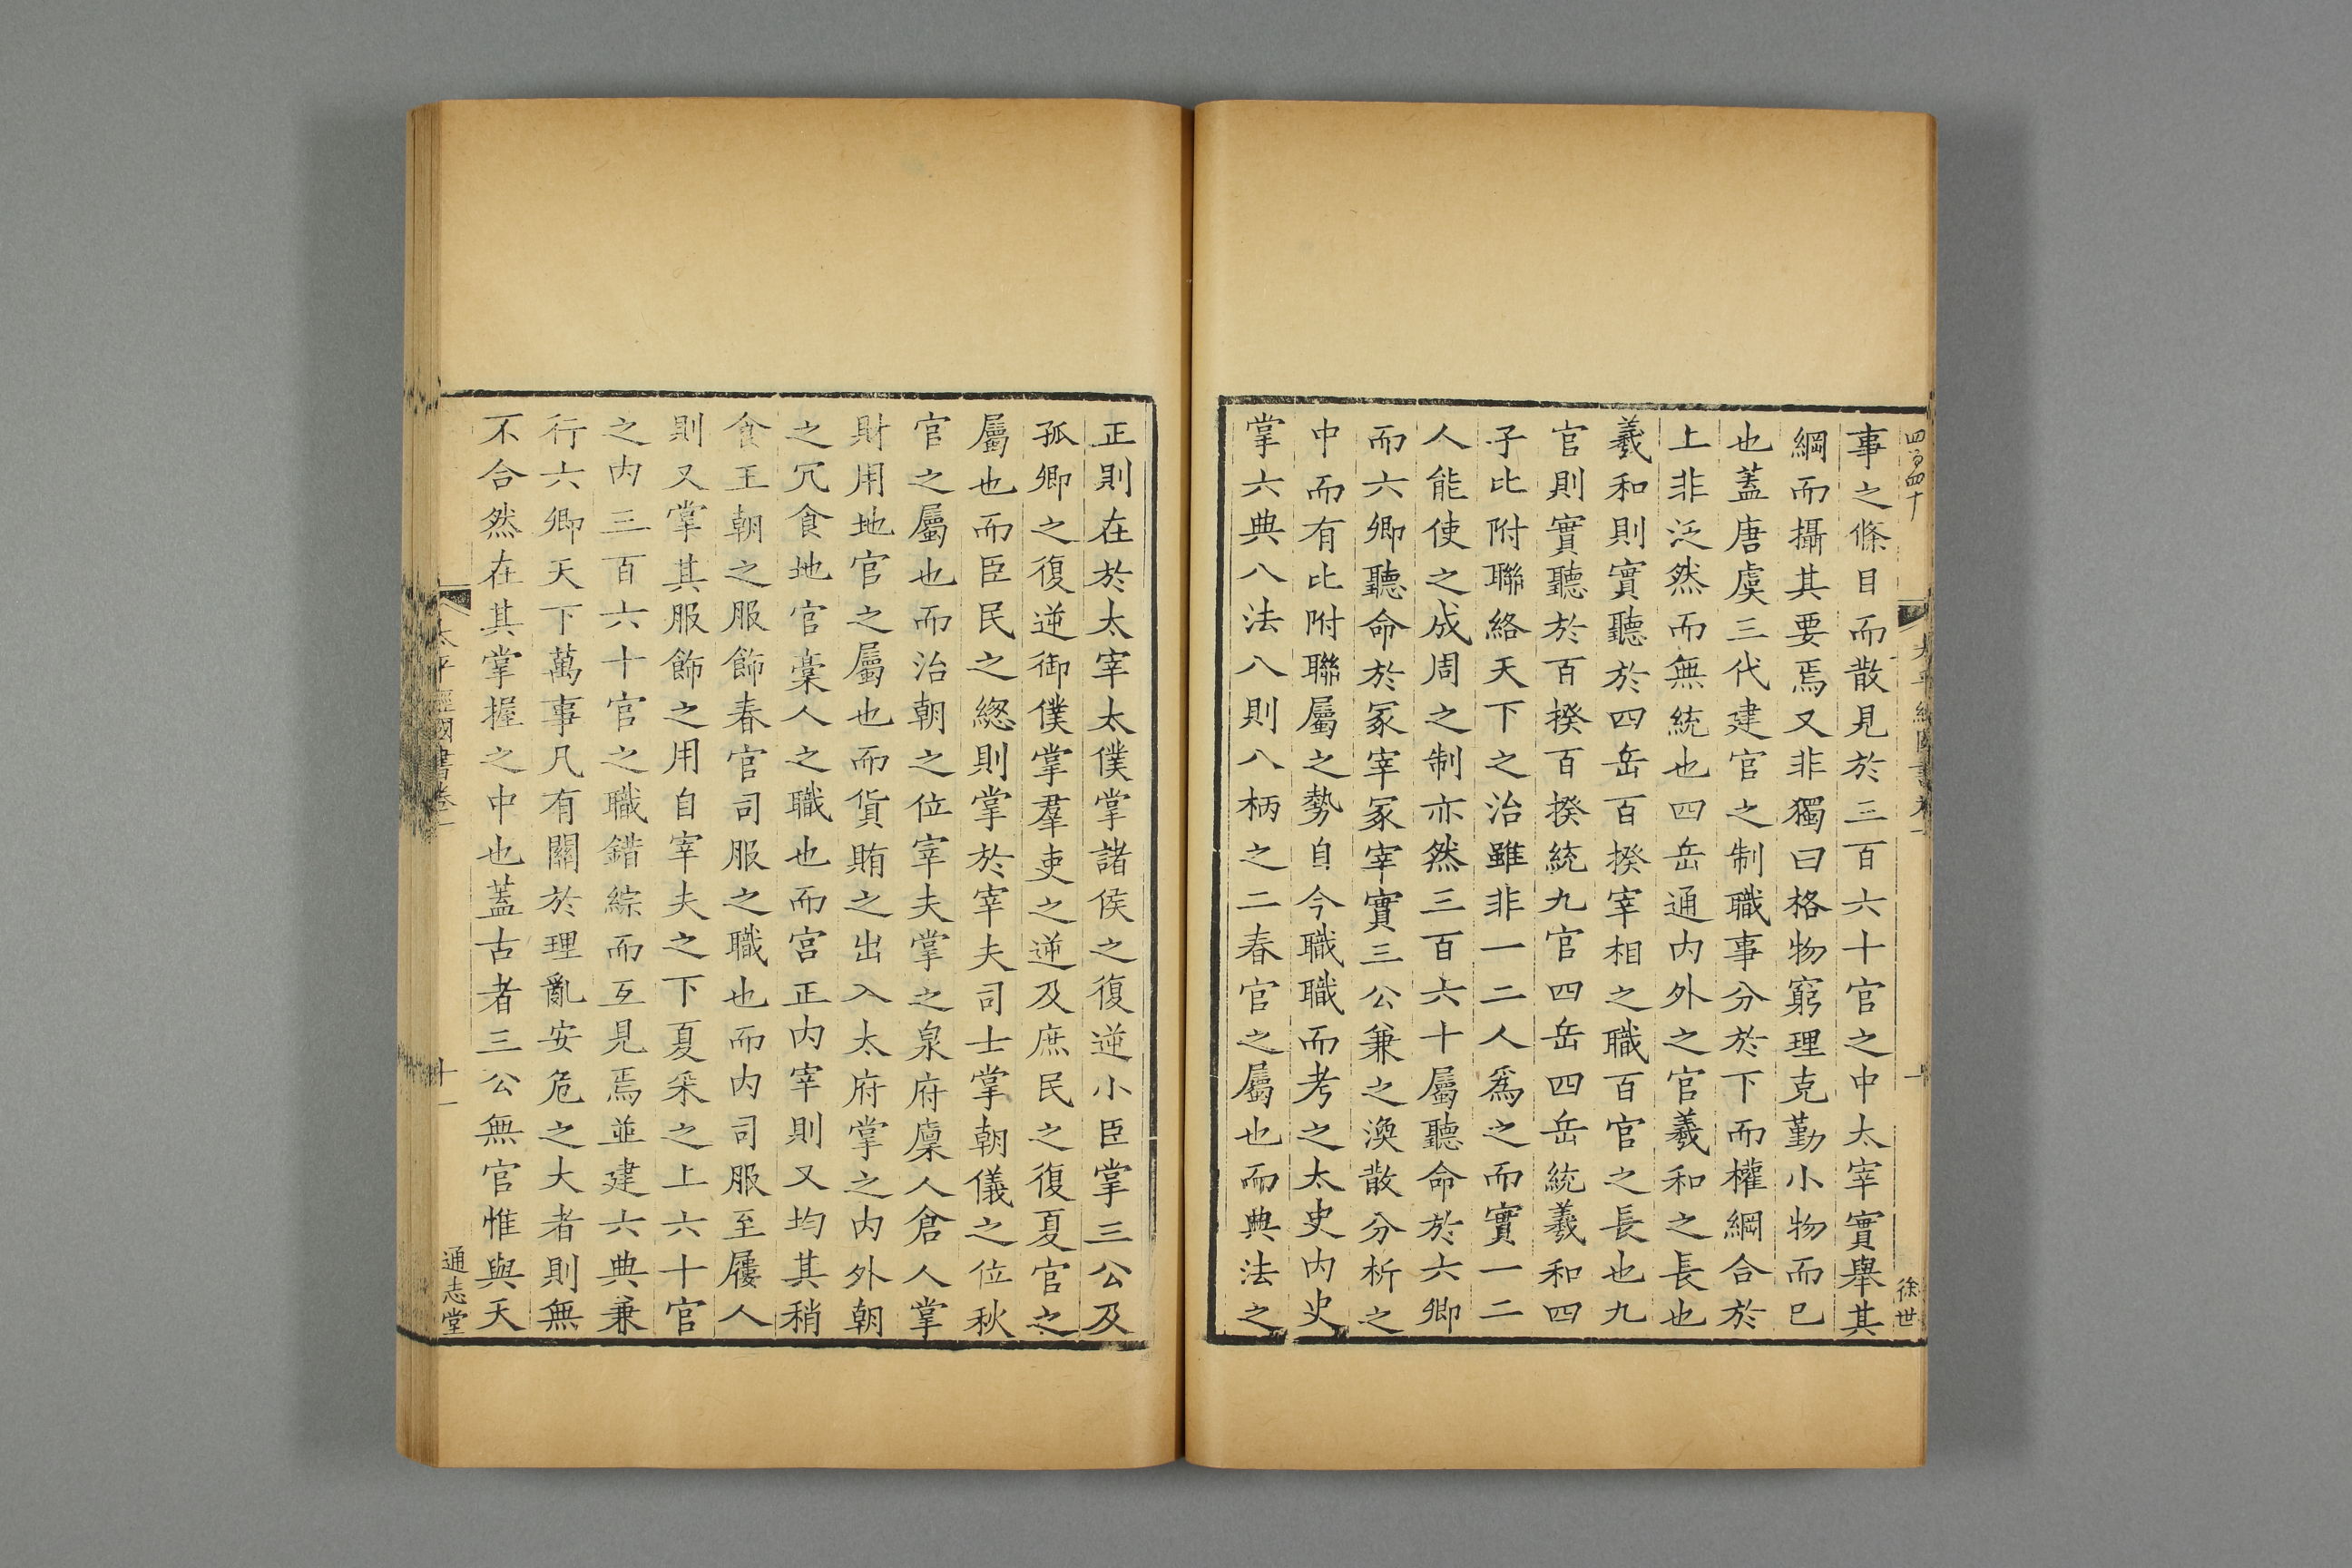 四百四十
徐世
事之條目而散見於三百六十官之中太宰實舉其
綱而攝其要焉又非獨曰格物窮理克勤小物而已
也蓋唐虞三代建官之制職事分於下而權綱合於
上非泛然而無統也四岳通内外之官羲和之長也
羲和則實聽於四岳百揆宰相之職百官之長也九
官則實聽於百揆百揆統九官四岳四岳統羲和四
子比附聯絡天下之治雖非一二人爲之而實一二
人能使之成周之制亦然三百六十屬聽命於六卿
而六卿聽命於冢宰冢宰實三公兼之渙散分析之
中而有比附聯屬之勢自今職職而考之太史内史
掌六典八法八則八柄之二春官之屬也而典法之
正則在於太宰太僕掌諸侯之復逆小臣掌三公及
孤卿之復逆御僕掌羣吏之逆及庶民之復夏官之
屬也而臣民之緫則掌於宰夫司士掌朝儀之位秋
官之屬也而治朝之位宰夫掌之泉府廩人倉人掌
財用地官之屬也而貨賄之出入太府掌之内外朝
之冗食地官槀人之職也而宫正内宰則又均其稍
食王朝之服飾春官司服之職也而内司服至屨人
則又掌其服飾之用自宰夫之下夏采之上六十官
之内三百六十官之職錯綜而互見焉並建六典兼
行六卿天下萬事凡有關於理亂安危之大者則無
不合然在其掌握之中也蓋古者三公無官惟與天
太平經國書卷一
十一
通志堂